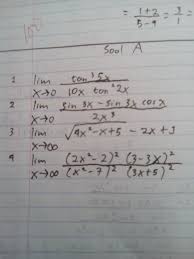 = 1+2 / 5-4 = 3 / 1
Soal A
1 lim x→0 tan³5x / 10x tan²2x
2 lim x→0 sin 3x - sin 3x cos x / 2x³
3 lim x→∞ √4x²-x+5 - 2x+3
4 lim x→∞ (2x²-2)² (3-3x)² / (x²-7)² (3x+5)²